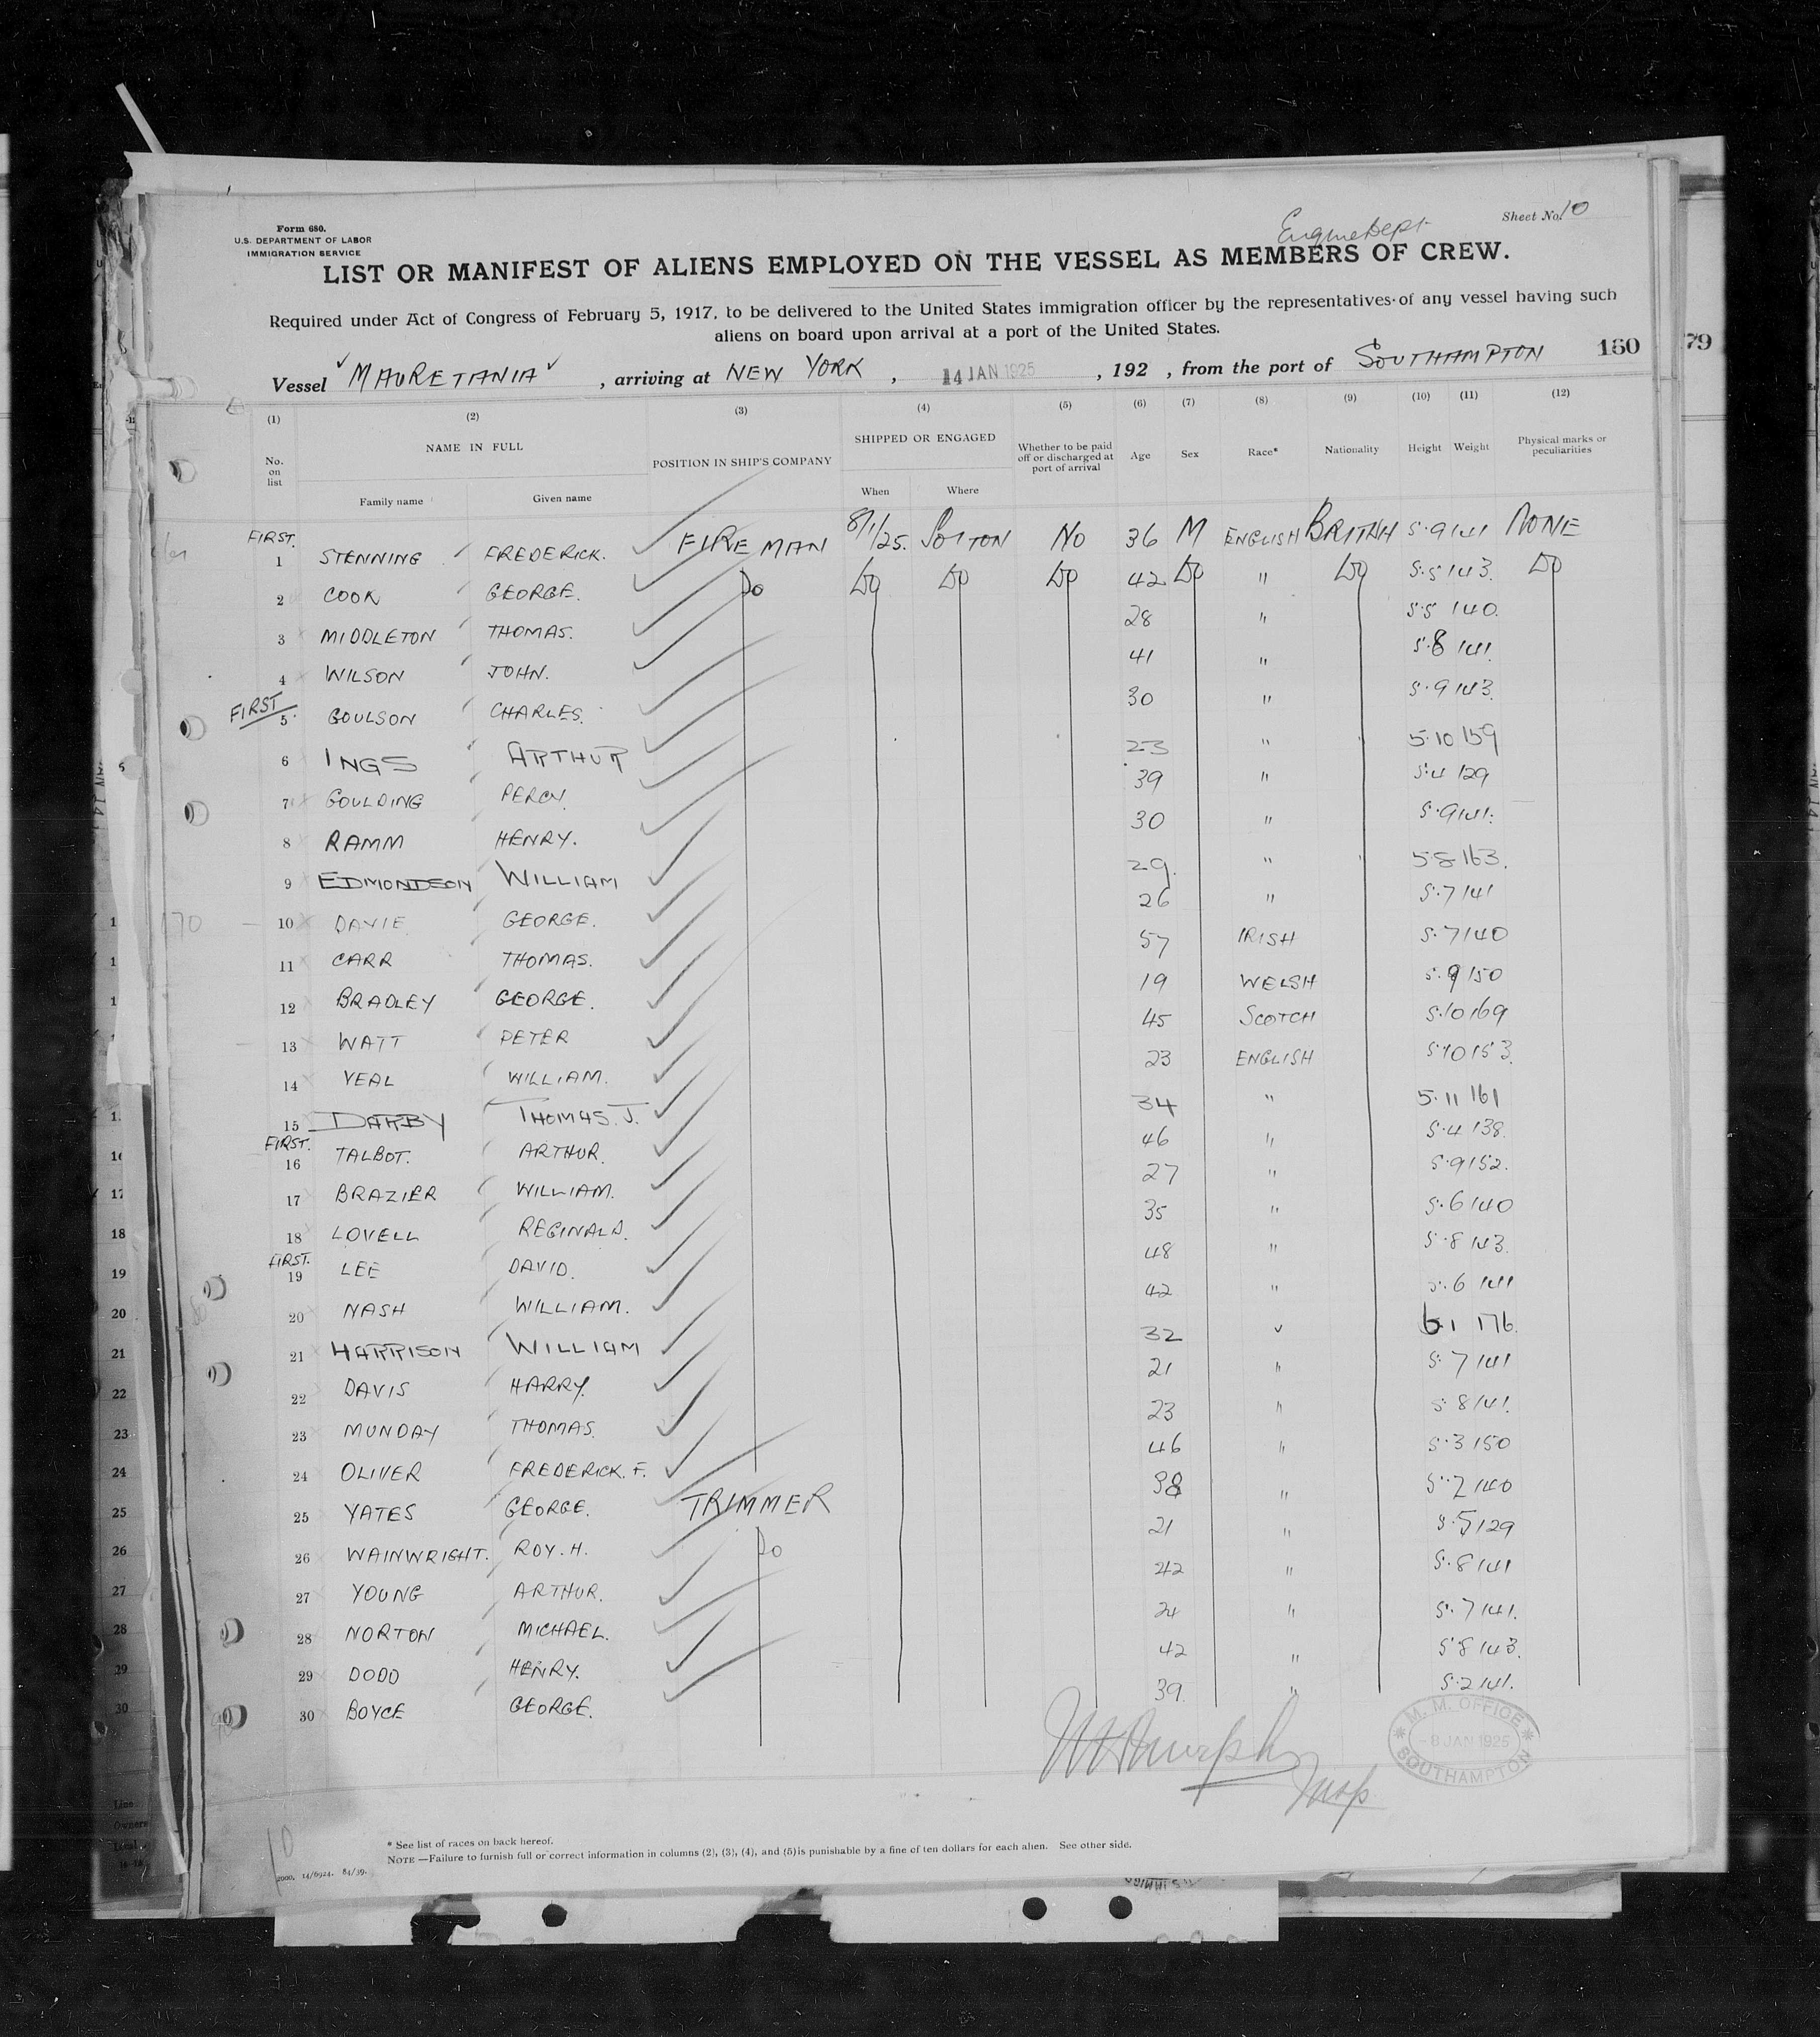 Form 680.
U.S. DEPARTMENT OF LABOR
IMMIGRATION SERVICE
Engine Dept.
Sheet No. 10
LIST OR MANIFEST OF ALIENS EMPLOYED ON THE VESSEL AS MEMBERS OF CREW.
Required under Act of Congress of February 5, 1917, to be delivered to the United States immigration officer by the representatives of any vessel having such
aliens on board upon arrival at a port of the United States.
Vessel MAURETANIA, arriving at NEW YORK, 14 JAN 1925, 192 , from the port of SOUTHAMPTON 160 79
(1) (2) (3) (4) (5) (6) (7) (8) (9) (10) (11) (12)
No. on list NAME IN FULL POSITION IN SHIP'S COMPANY SHIPPED OR ENGAGED Whether to be paid off or discharged at port of arrival Age Sex Race* Nationality Height Weight Physical marks or peculiarities
Family name Given name When Where
FIRST. 1 STENNING FREDERICK. FIREMAN 8/1/25. SOTON NO 36 M ENGLISH BRITISH 5.9 141 NONE
2 COOK GEORGE. Do Do Do Do 42 Do " Do 5.5 143. Do
3 MIDDLETON THOMAS. 28 " 5.5 140.
4 WILSON JOHN. 41 " 5.8 141.
FIRST 5 GOULSON CHARLES. 30 " 5.9 143.
6 INGS ARTHUR 23 " 5.10 159
7 GOULDING PERCY. 39 " 5.4 129
8 RAMM HENRY. 30 " 5.9 141.
9 EDMONDSON WILLIAM 29. " 5.8 163.
170 10 DAVIE GEORGE. 26 " 5.7 141
11 CARR THOMAS. 57 IRISH 5.7 140
12 BRADLEY GEORGE. 19 WELSH 5.9 150
13 WATT PETER 45 SCOTCH 5.10 169
14 VEAL WILLIAM. 23 ENGLISH 5.10 153.
15 DARBY THOMAS. J. 34 " 5.11 161
FIRST. 16 TALBOT. ARTHUR. 46 " 5.4 138.
17 BRAZIER WILLIAM. 27 " 5.9 152.
18 LOVELL REGINALD. 35 " 5.6 140
FIRST. 19 LEE DAVID. 48 " 5.8 143.
20 NASH WILLIAM. 42 " 5.6 141
21 HARRISON WILLIAM 32 " 6.1 176.
22 DAVIS HARRY. 21 " 5.7 141
23 MUNDAY THOMAS. 23 " 5.8 141.
24 OLIVER FREDERICK. F. 46 " 5.3 150
25 YATES GEORGE. TRIMMER 38 " 5.2 140
26 WAINWRIGHT. ROY. H. Do 21 " 5.5 129
27 YOUNG ARTHUR. 42 " 5.8 141
28 NORTON MICHAEL. 24 " 5.7 141.
29 DODD HENRY. 42 " 5.8 143.
30 BOYCE GEORGE. 39. " 5.2 141.
Insp
M. M. OFFICE
- 8 JAN 1925
SOUTHAMPTON
10
* See list of races on back hereof.
NOTE —Failure to furnish full or correct information in columns (2), (3), (4), and (5) is punishable by a fine of ten dollars for each alien. See other side.
2000. 14/6924. 84/39.